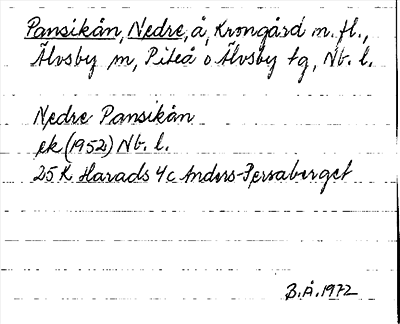 Pansikån, Nedre, å, Krongård m. fl.,
Älvsby sn, Piteå o Älvsby tg, Nb. l.
Nedre Pansikån
ek (1952) Nb. l.
25 K Harads 4c Anders-Persaberget
B.Å. 1972